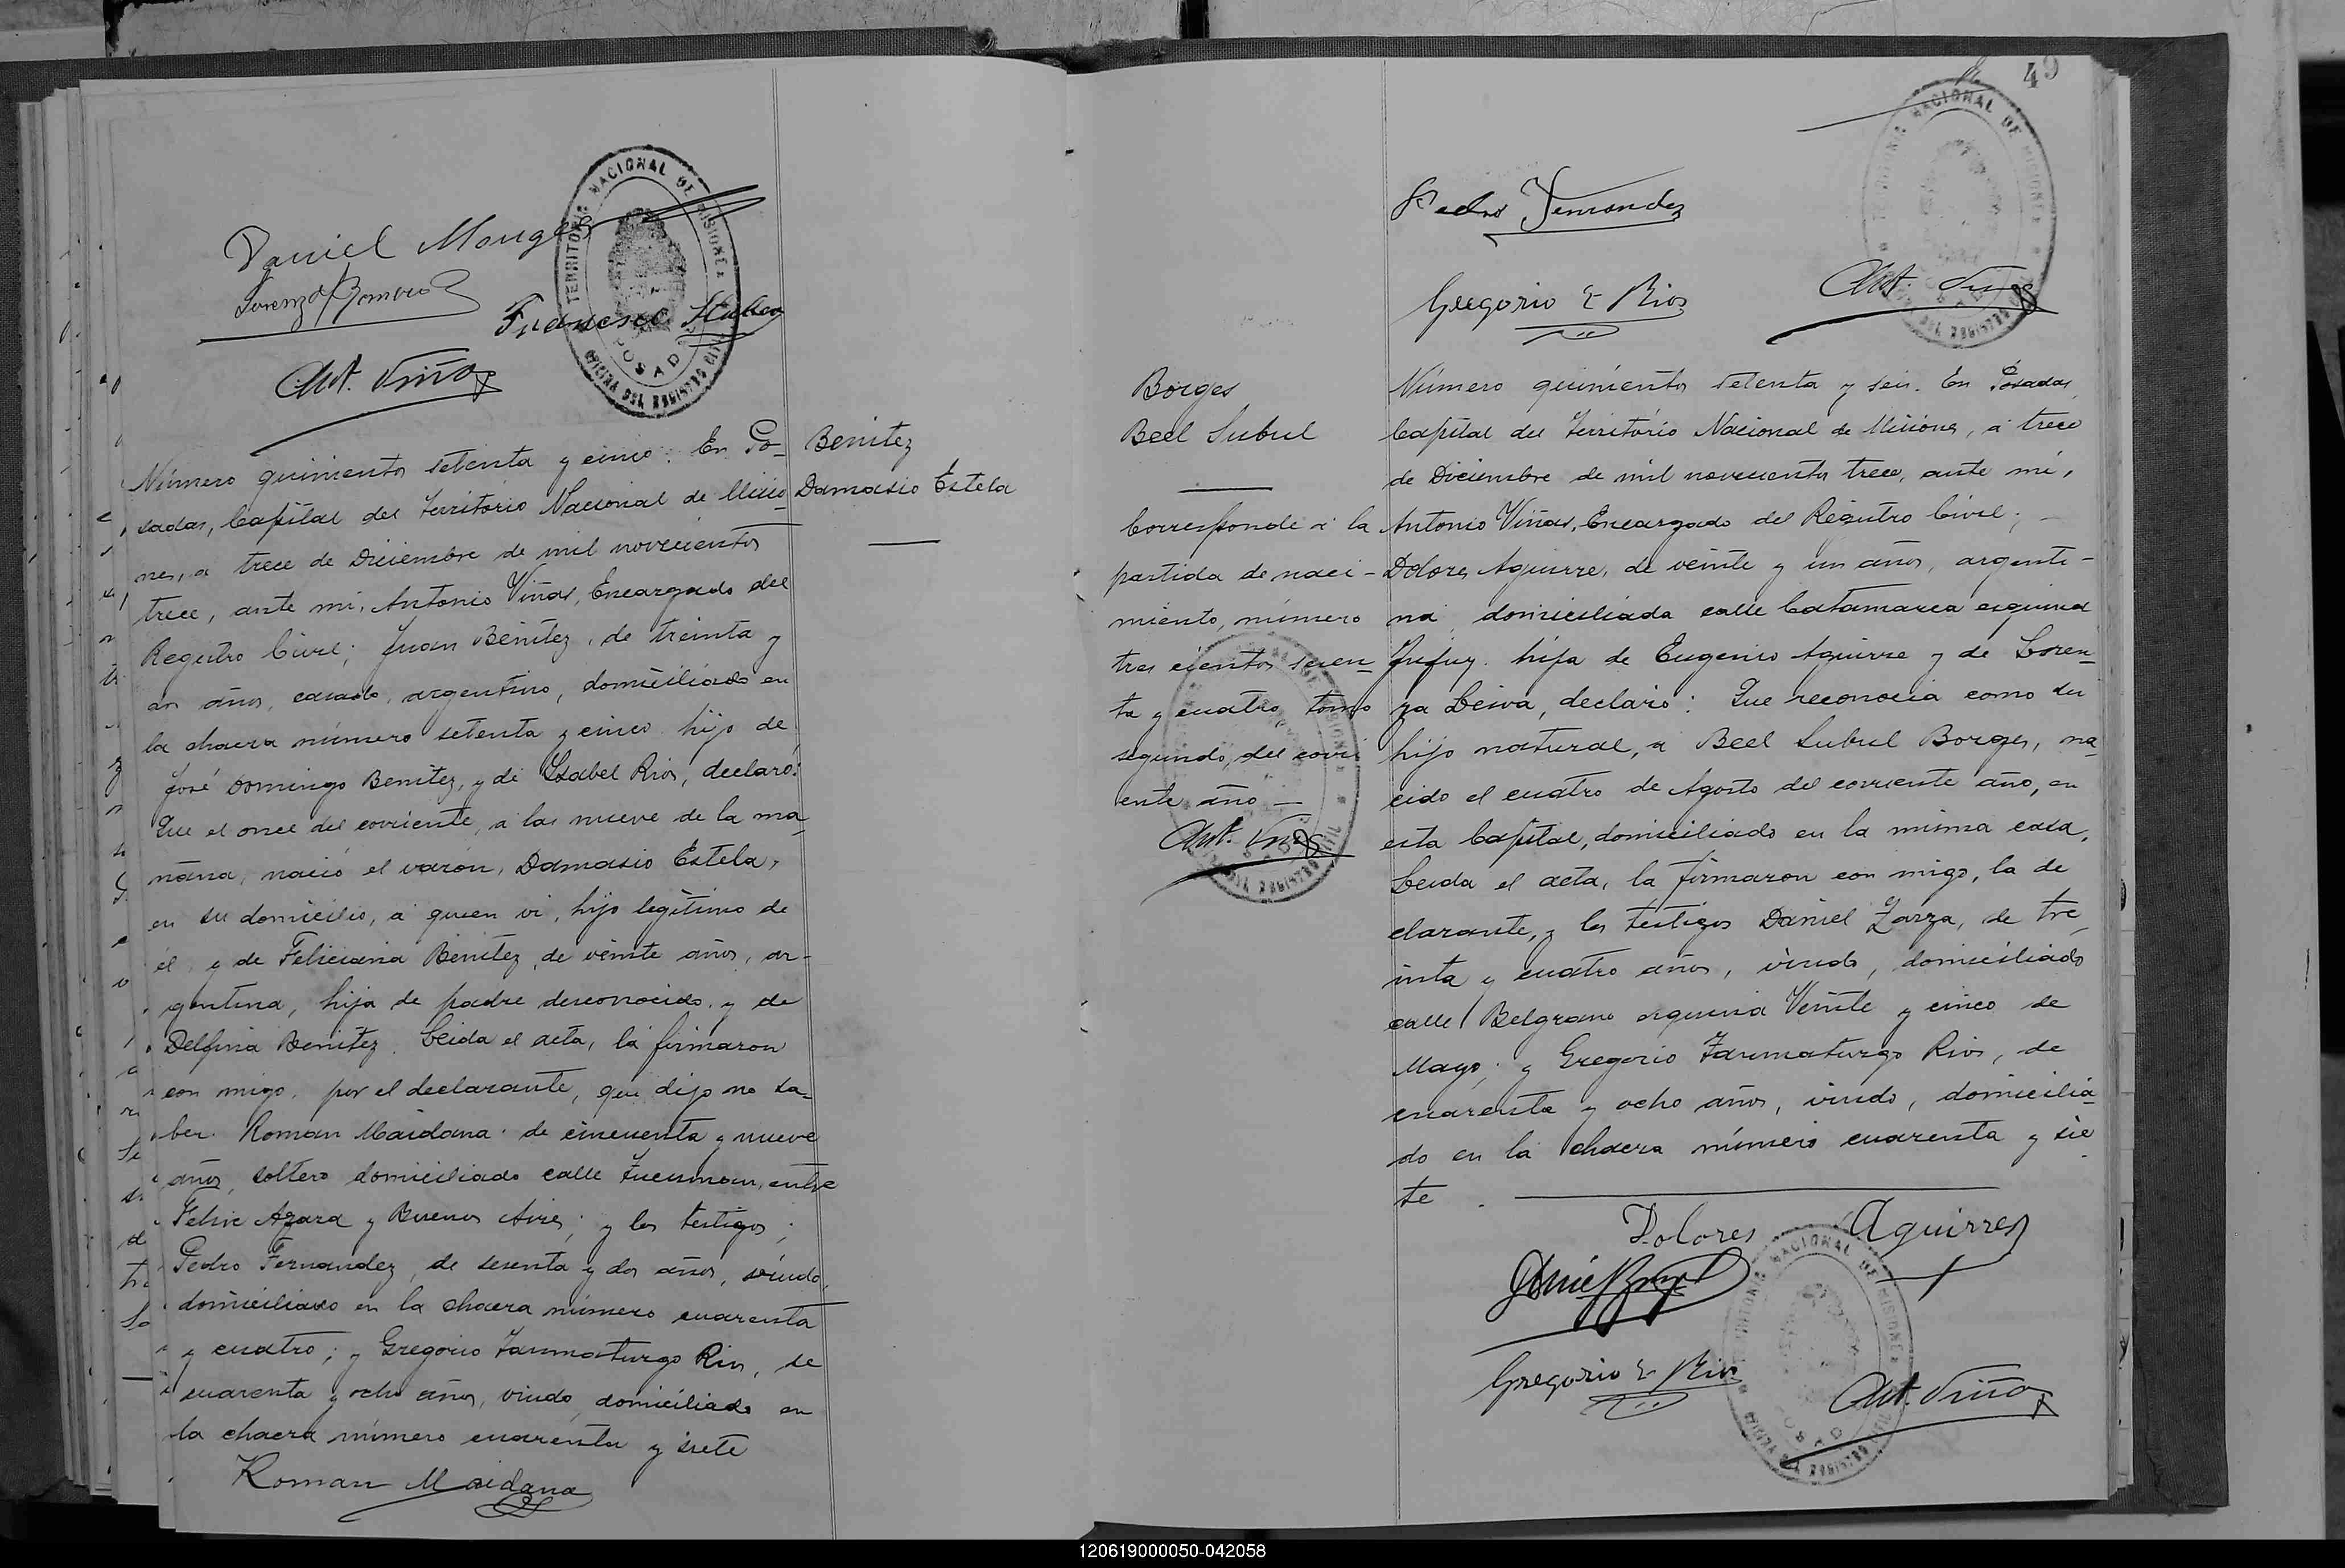 Daniel Monges
Lorenzo Romero
Francisco
Ant. Viñas
TERRITORIO NACIONAL DE MISIONES
POSADAS
OFICINA DEL REGISTRO CIVIL
Número quinientos setenta y cinco. En Po-
sadas, Capital del Territorio Nacional de Misio-
nes, a trece de Diciembre de mil novecientos
trece, ante mi, Antonio Viñas, Encargado del
Registro Civil; Juan Benitez, de treinta y
un años, casado, argentino, domiciliado en
la chacra número setenta y cinco hijo de
José Domingo Benitez, y de Isabel Rios, declaró:
Que el once del corriente, a las nueve de la ma-
ñana, nació el varón, Damasio Estela,
en su domicilio, a quien vi, hijo legitimo de
él y de Feliciana Benitez, de veinte años, ar-
gentina, hija de padre desconocido, y de
Delfina Benitez. Leida el acta, la firmaron
con migo, por el declarante, que dijo no sa-
ber. Roman Maidana. de cincuenta y nueve
años, soltero domiciliado calle Tucuman, entre
Felix Azara y Buenos Aires; y los testigos;
Pedro Fernandez, de sesenta y dos años, viudo,
domiciliado en la chacra número cuarenta
y cuatro; y Gregorio Taumaturgo Rios, de
cuarenta y ocho años, viudo, domiciliado en
la chacra número cuarenta y siete
Roman Maidana
Benitez
Damasio Estela
49
Pedro Fernandez
Gregorio T Rios
Ant. Viñas
TERRITORIO NACIONAL DE MISIONES
POSADAS
OFICINA DEL REGISTRO CIVIL
Borges
Beel Subul
Corresponde a la
partida de naci-
miento, número
tres cientos sesen-
ta y cuatro, tomo
segundo, del corri
ente año
Ant. Viñas
Número quinientos setenta y seis. En Posadas,
Capital del Territorio Nacional de Misiones, a trece
de Diciembre de mil novecientos trece, ante mi,
Antonio Viñas, Encargado del Registro Civil;
Dolores Aguirre, de veinte y un años, argenti-
na domiciliada calle Catamarca esquina
Jujuy. hija de Eugenio Aguirre y de Loren-
za Leiva, declaró: Que reconocia como su
hijo natural, a Beel Subul Borges, na
cido el cuatro de Agosto del corriente año, en
esta Capital, domiciliado en la misma casa,
Leida el acta, la firmaron con migo, la de
clarante, y los testigos Daniel Zarza, de tre
inta y cuatro años, viudo, domiciliado
calle Belgrano esquina Veinte y cinco de
Mayo; y Gregorio Taumaturgo Rios, de
cuarenta y ocho años, viudo, domicilia-
do en la chacra número cuarenta y sie
te
Dolores Aguirre
Gregorio T Rios
Ant. Viñas
TERRITORIO NACIONAL DE MISIONES
POSADAS
OFICINA DEL REGISTRO CIVIL
120619000050-042058